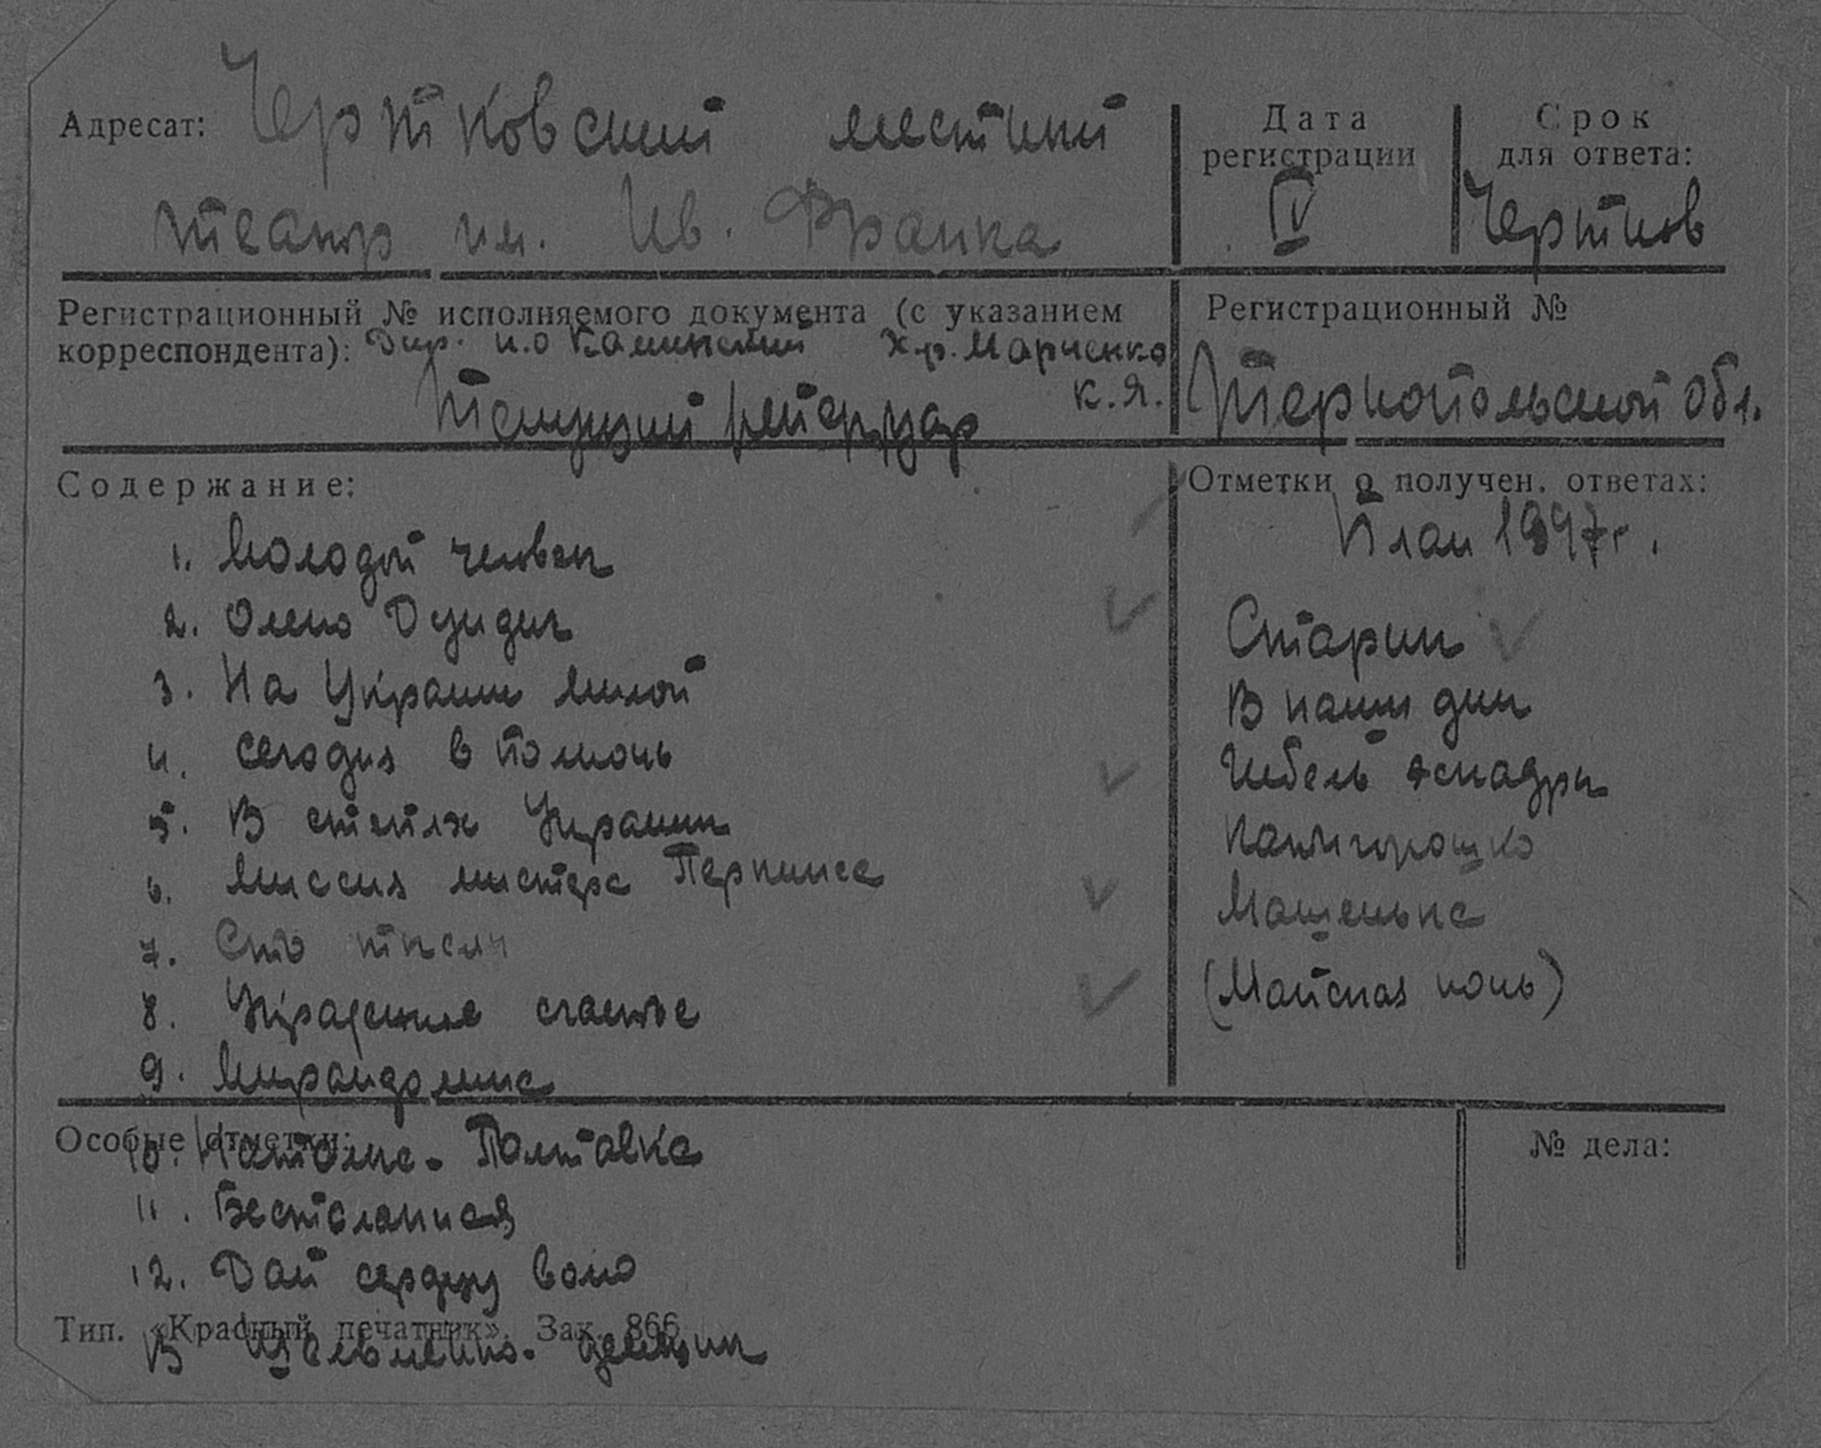 Адресат: Чертковский местный
театр им. Ив. Франка
Дата
регистрации
IV
Срок
для ответа:
Чертков
Регистрационный № исполняемого документа (с указанием
корреспондента): Дир. и.о Каминский Х.р. Марченко
К.Я.
Текущий репертуар
Регистрационный №
Тернопольской обл.
Содержание:
1. Молодой человек
2. Олеко Дундич
3. На Украине милой
4. Сегодня в полночь
5. В степях Украины
6. Миссия мистера Перкинса
7. Сто тысяч
8. Украденное счастье
9. Мирандолина
Отметки о получен. ответах:
План 1947г.
Старик
В наши дни
Гибель эскадры
Котигорошко
Машенька
(Майская ночь)
Особые отметки:
10. Наталка-Полтавка
11. Бесталанная
12. Дай сердцу волю
№ дела:
Тип. «Красный печатник». Зак. 866
13 Шельменко-денщик